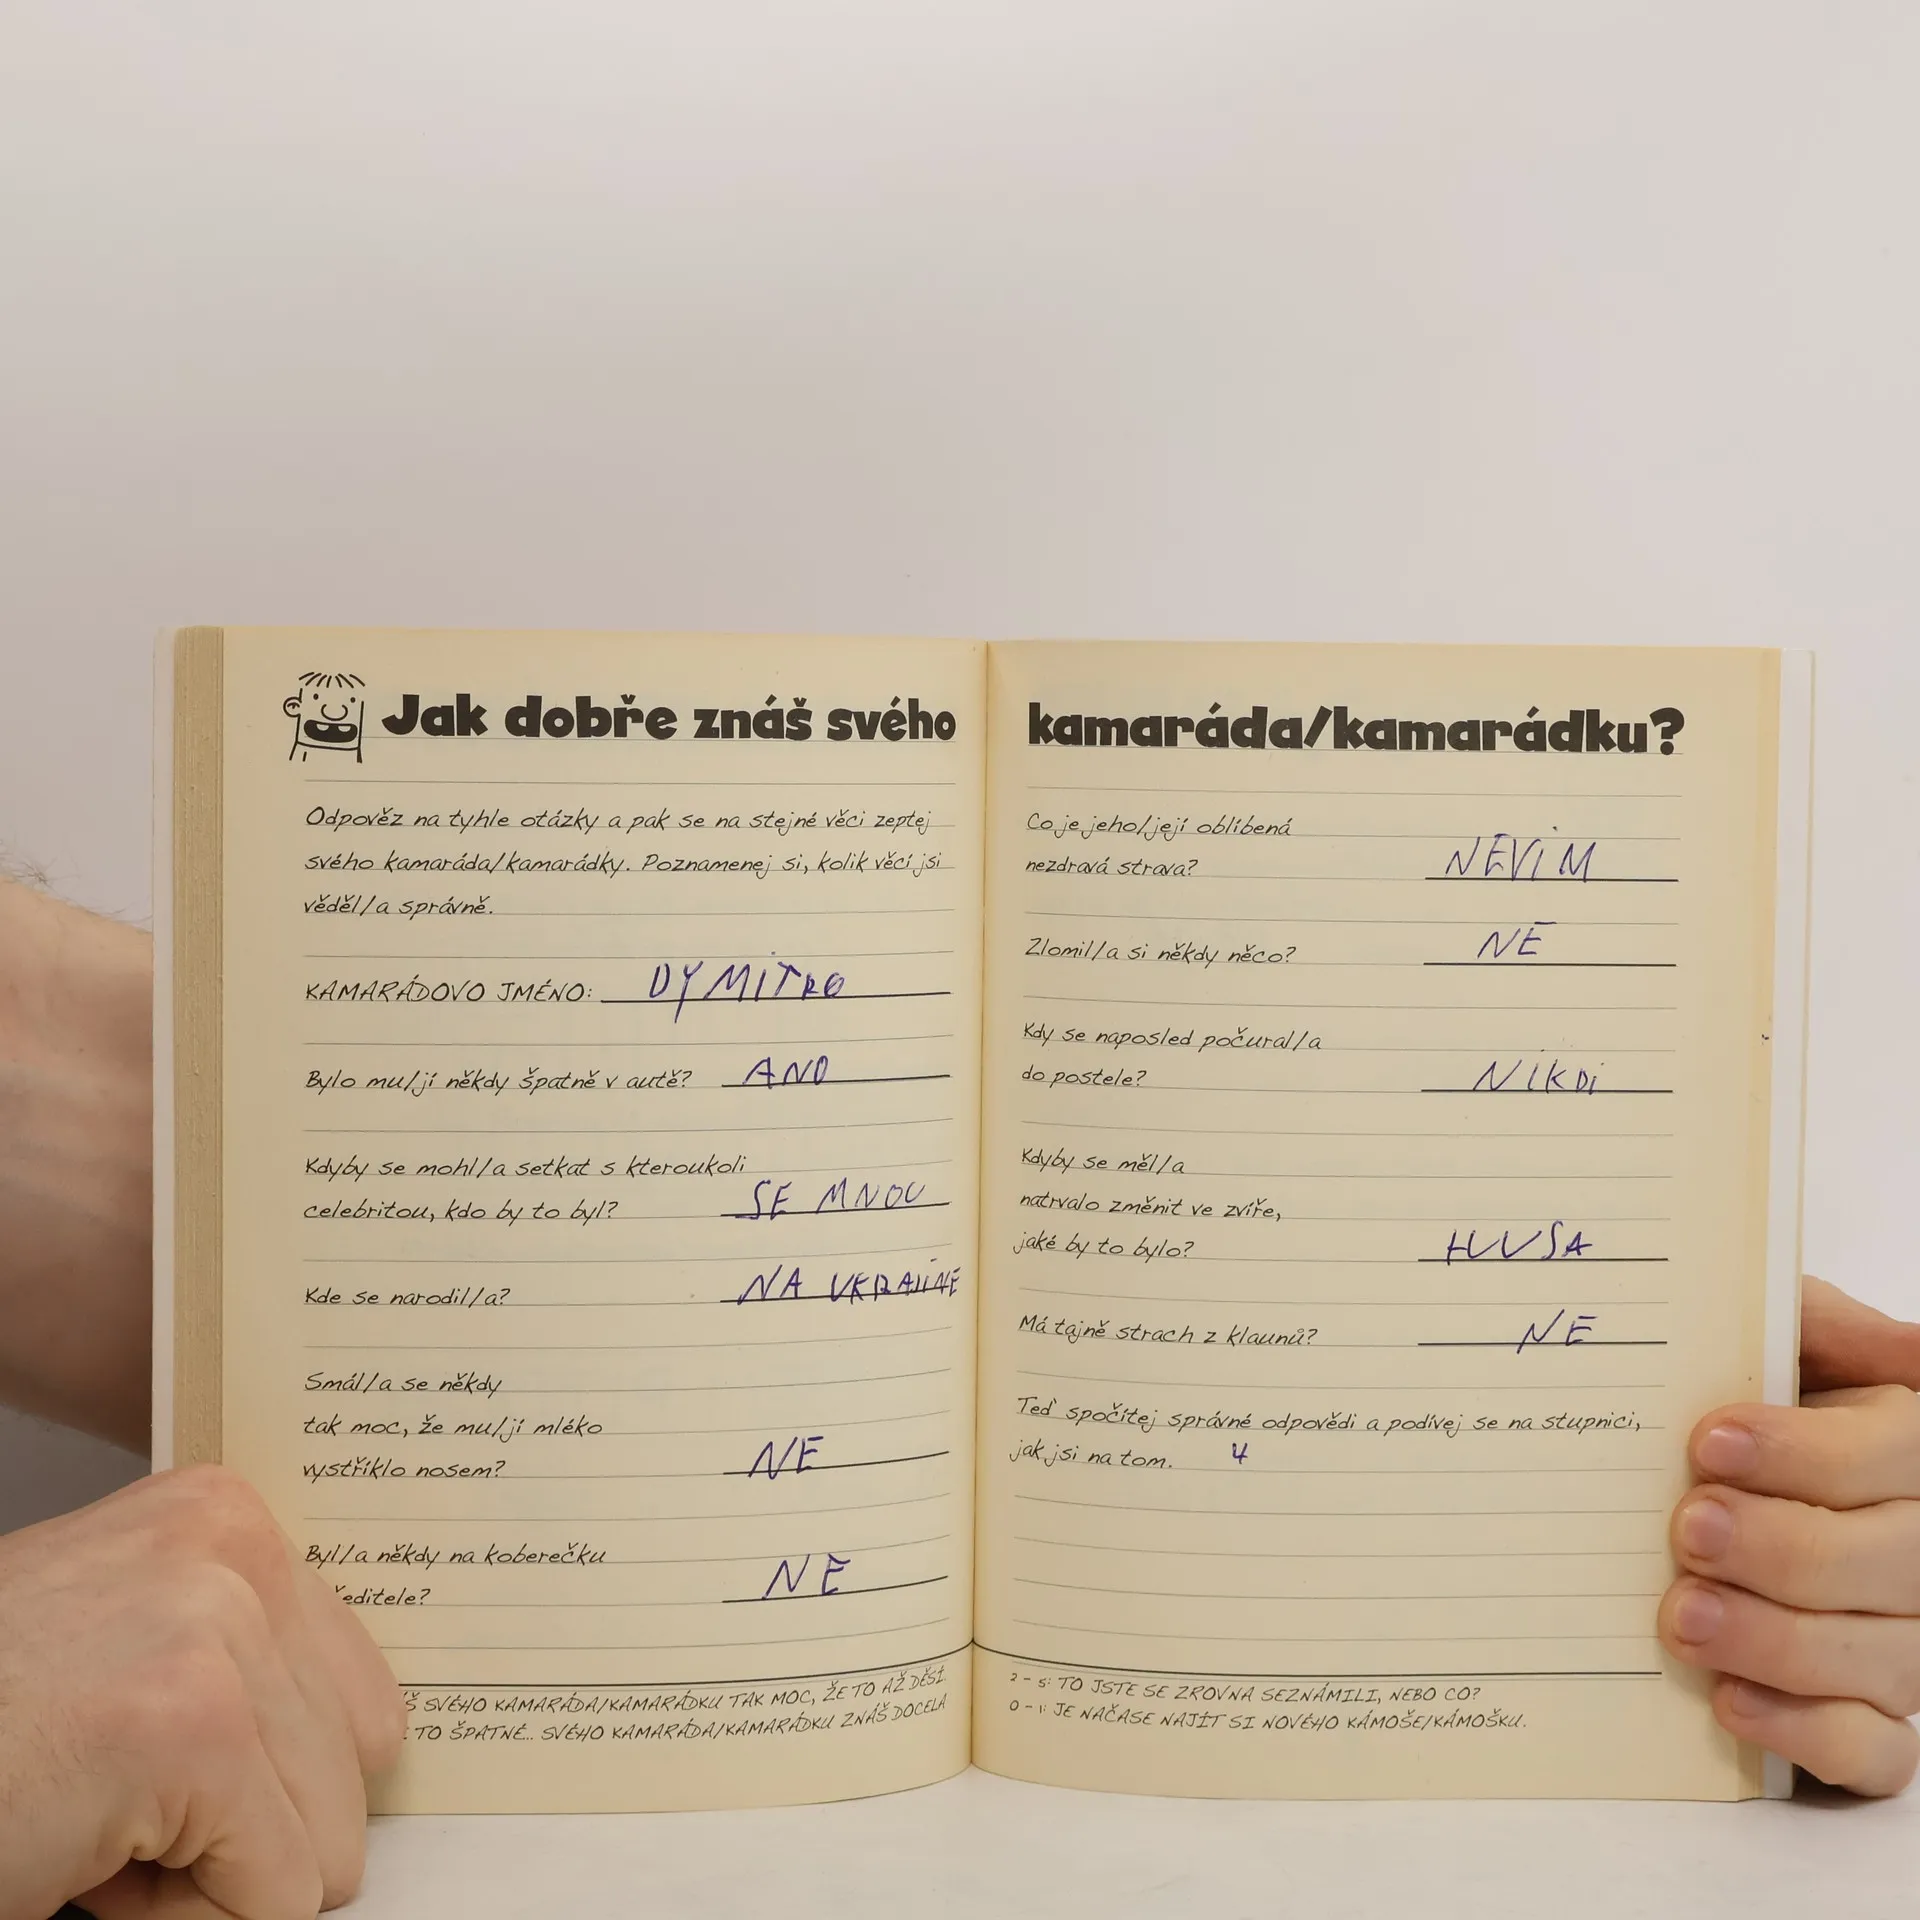 Jak dobře znáš svého
Odpověz na tyhle otázky a pak se na stejné věci zeptej
svého kamaráda/kamarádky. Poznamenej si, kolik věcí jsi
věděl/a správně.
KAMARÁDOVO JMÉNO: DYMITRO
Bylo mu/jí někdy špatně v autě? ANO
Kdyby se mohl/a setkat s kteroukoli
celebritou, kdo by to byl? SE MNOU
Kde se narodil/a? NA UKRAJINE
Smál/a se někdy
tak moc, že mu/jí mléko
vystříklo nosem? NE
Byl/a někdy na koberečku
editele? NE
Š SVÉHO KAMARÁDA/KAMARÁDKU TAK MOC, ŽE TO AŽ DĚSÍ.
TO ŠPATNÉ... SVÉHO KAMARÁDA/KAMARÁDKU ZNÁŠ DOCELA
kamaráda/kamarádku?
Co je jeho/její oblíbená
nezdravá strava? NEVIM
Zlomil/a si někdy něco? NE
Kdy se naposled počural/a
do postele? NIKDI
Kdyby se měl/a
natrvalo změnit ve zvíře,
jaké by to bylo? HUSA
Má tajně strach z klaunů? NE
Teď spočítej správné odpovědi a podívej se na stupnici,
jak jsi na tom. 4
2 – 5: TO JSTE SE ZROVNA SEZNÁMILI, NEBO CO?
0 – 1: JE NAČASE NAJÍT SI NOVÉHO KÁMOŠE/KÁMOŠKU.